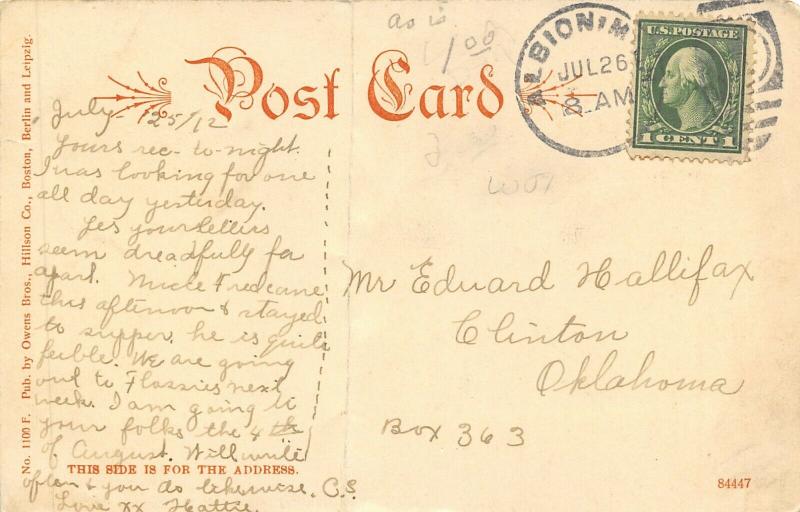 as is
1/00
ALBION, M
JUL 26
8 AM
U.S. POSTAGE
1 CENT 1
Post Card
July 25/12
Yours rec- to-night.
I was looking for one
all day yesterday.
Yes your letters
seem dreadfully far
apart. Uncle Fred came
this afternoon & stayed
to supper. he is quite
feeble. We are going
out to Flossies next
week. I am going to
your folks the 4th
of August. Will write
often & you do likewise. C.S.
Love xx Hattie.
Mr Eduard Hallifax
Clinton
Oklahoma
Box 363
THIS SIDE IS FOR THE ADDRESS.
84447
No. 1100 F. Pub. by Owens Bros., Hillson Co., Boston, Berlin and Leipzig.